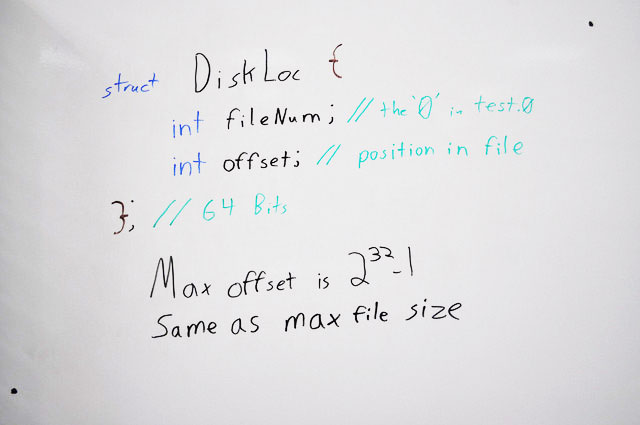 struct DiskLoc {
int fileNum; // the '0' in test.0
int offset; // position in file
}; // 64 Bits
Max offset is 2³²-1
Same as max file size